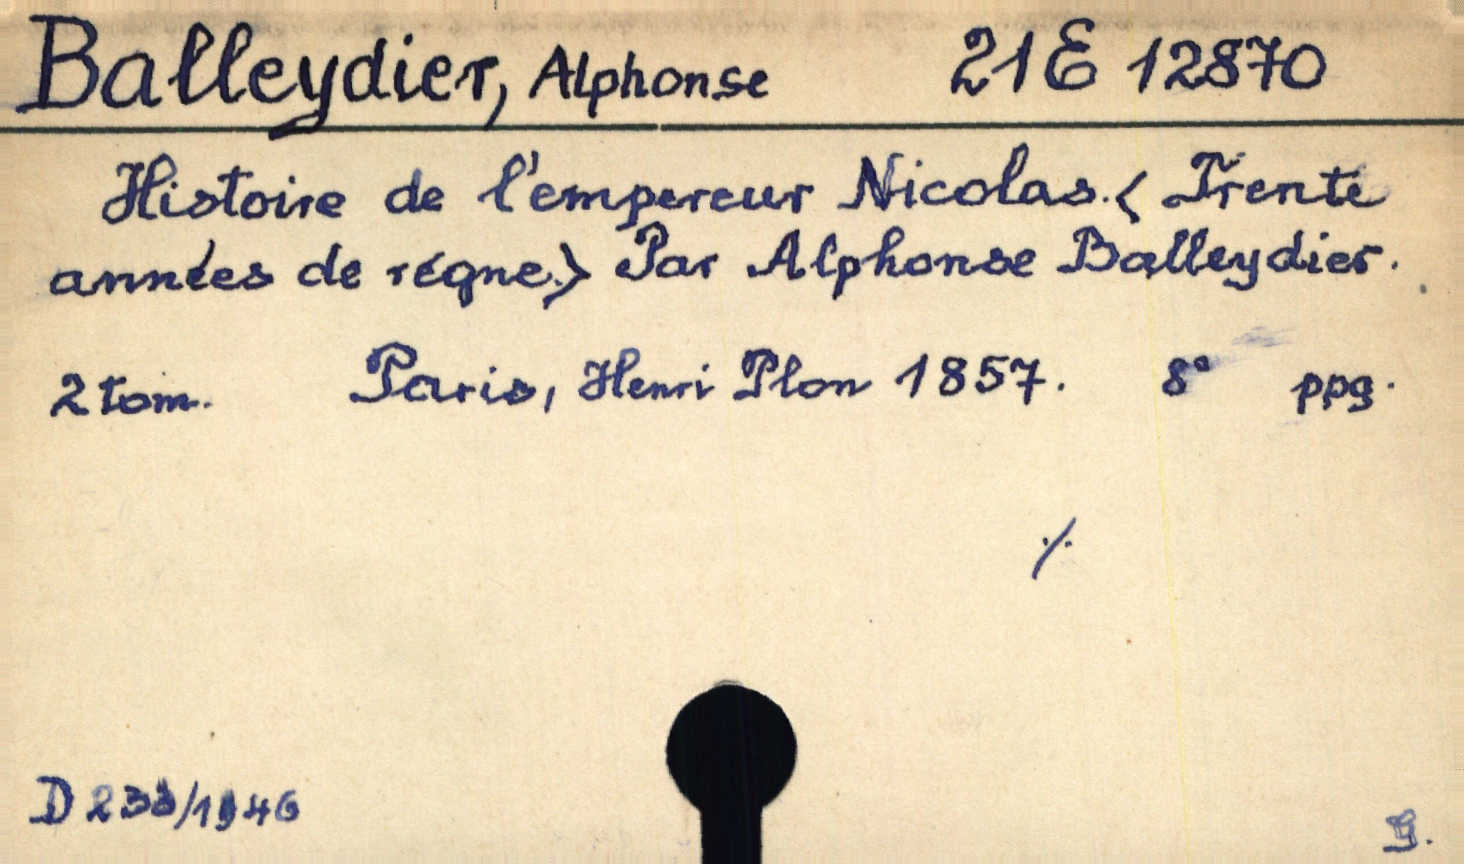 Balleydier, Alphonse 21 E 12870
Histoire de l'empereur Nicolas. < Trente
années de régne.> Par Alphonse Balleydier.
2 tom. Paris, Henri Plon 1857. 8° ppg.
./.
D 233/1946
G.